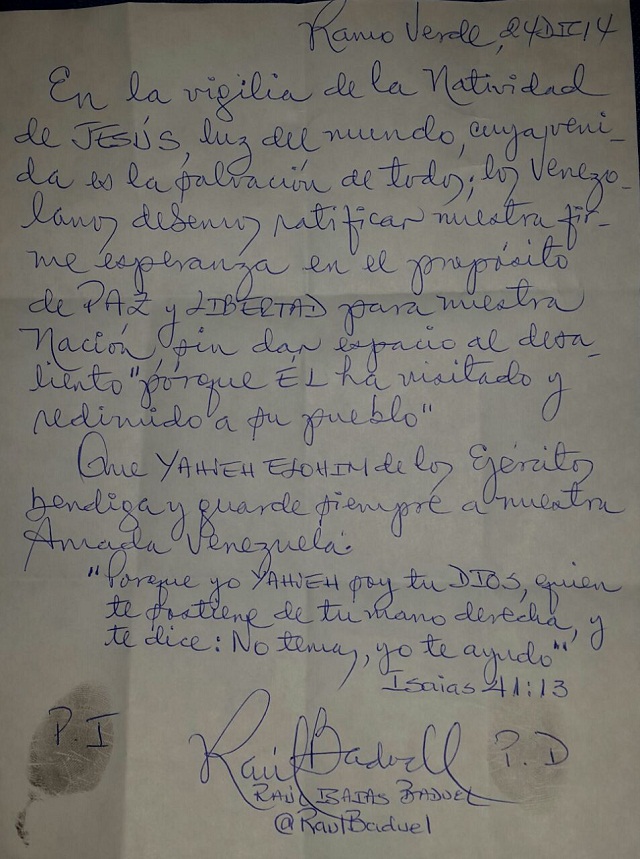 Ramo Verde, 24DIC14
En la vigilia de la Natividad
de JESÚS, luz del mundo, cuya veni-
da es la salvación de todos; los Venezo-
lanos debemos ratificar nuestra fir-
me esperanza en el propósito
de PAZ y LIBERTAD para nuestra
Nación, sin dar espacio al desa-
liento "porque ÉL ha visitado y
redimido a su pueblo"
Que YAHVEH ELOHIM de los Ejércitos
bendiga y guarde siempre a nuestra
Amada Venezuela.
"Porque yo YAHVEH soy tu DIOS, quien
te sostiene de tu mano derecha, y
te dice: No temas, yo te ayudo"
Isaias 41:13
P.I
Raúl Baduel
P.D
RAÚL ISAIAS BADUEL
@RaulBaduel